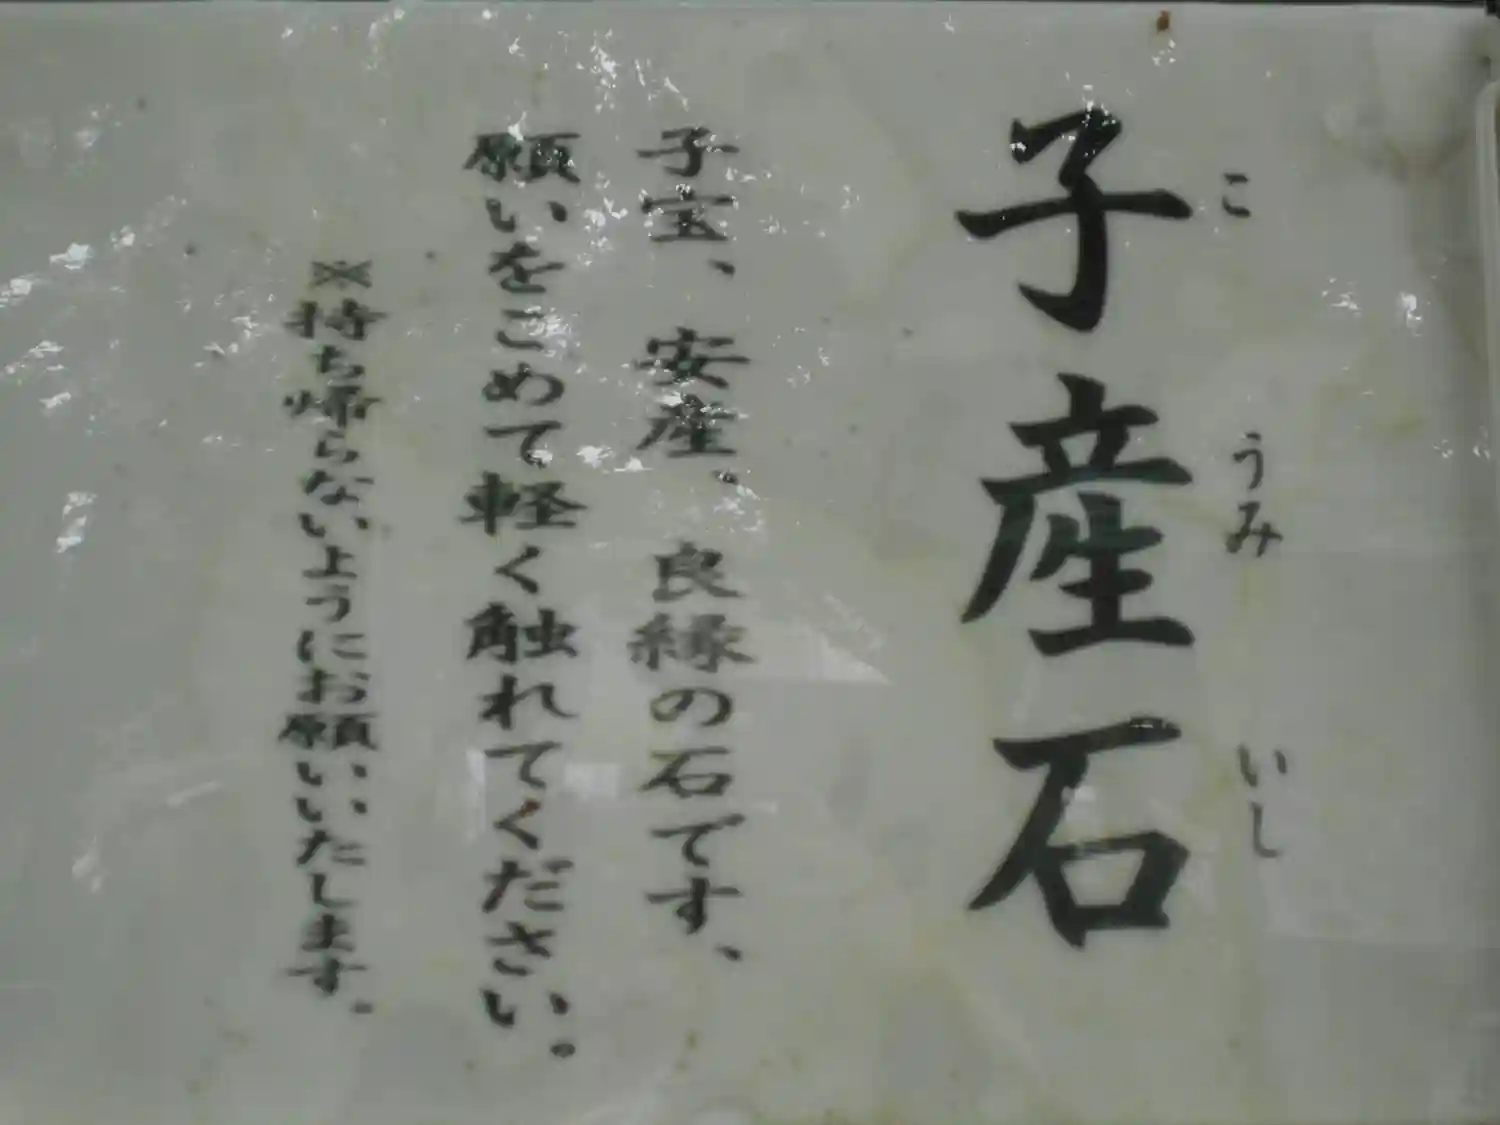 子産石
こ うみ いし
子宝、安産、良縁の石です、
願いをこめて軽く触れてください。
※持ち帰らないようにお願いいたします。